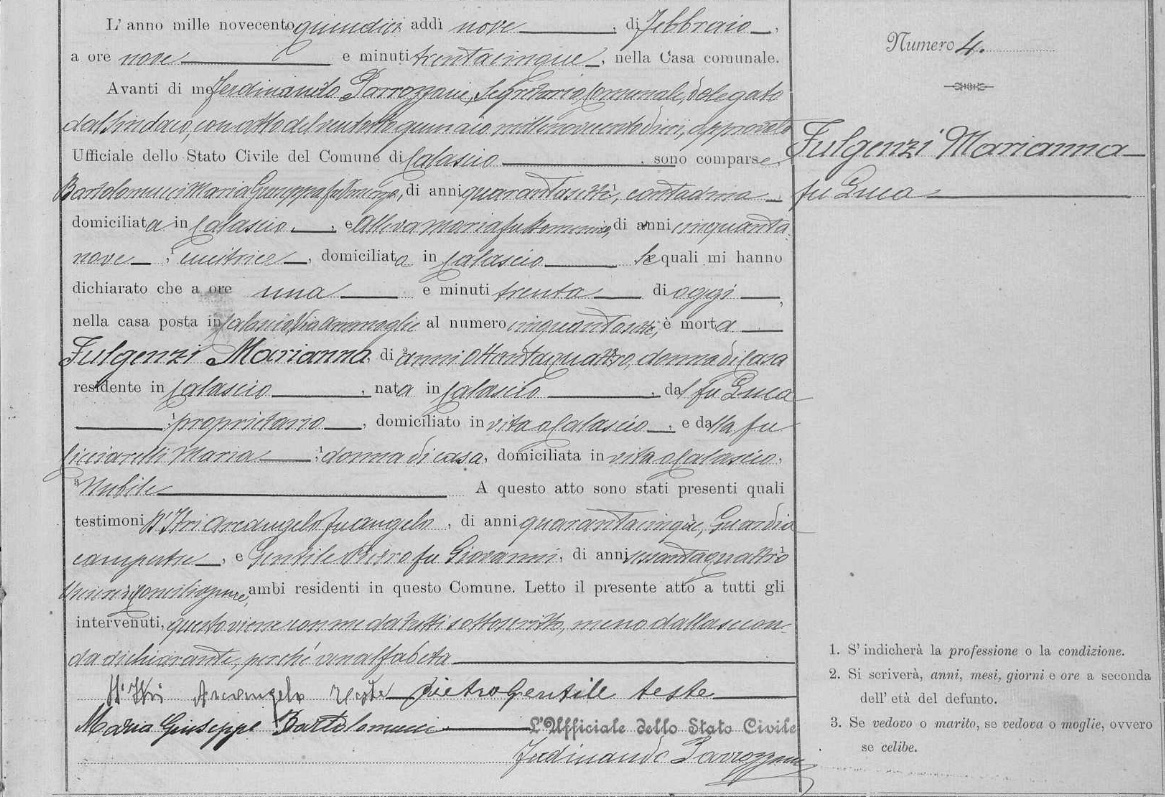 L'anno mille novecento quindici, addì nove, di Febbraio,
a ore nove e minuti trentacinque, nella Casa comunale.
Numero 4.
Avanti di me Ferdinando Parrozzani, Segretario Comunale, delegato
dal Sindaco, con atto del gennaio, approvato
Ufficiale dello Stato Civile del Comune di Calascio sono comparse
Fulgenzi Marianna
fu Luca
Bartolomucci Maria Giuseppa fu, di anni, contadina
domiciliata in Calascio, e Maria fu Domenico, di anni cinquanta
nove, cucitrice, domiciliata in Calascio le quali mi hanno
dichiarato che a ore una e minuti trenta di oggi,
nella casa posta in Calascio Via al numero, è morta
Fulgenzi Marianna, di anni ottantaquattro, donna di casa
residente in Calascio, nata in Calascio, dal fu Luca
, proprietario, domiciliato in vita a Calascio, e dalla fu
Cicciarelli Maria, donna di casa, domiciliata in vita a Calascio.
Nubile A questo atto sono stati presenti quali
testimoni D'Itri Arcangelo fu Angelo, di anni quarantacinque, Guardia
campestre, e Gentile Pietro fu Giovanni, di anni
ambi residenti in questo Comune. Letto il presente atto a tutti gli
intervenuti, questo viene con me da tutti sottoscritto, meno dalla secon-
da dichiarante, perché analfabeta
D'Itri Arcangelo teste pietro Gentile teste
Maria Giuseppe Bartolomucci L'Ufficiale dello Stato Civile
Ferdinando Parrozzani
1. S'indicherà la professione o la condizione.
2. Si scriverà, anni, mesi, giorni e ore a seconda
dell'età del defunto.
3. Se vedovo o marito, se vedova o moglie, ovvero
se celibe.